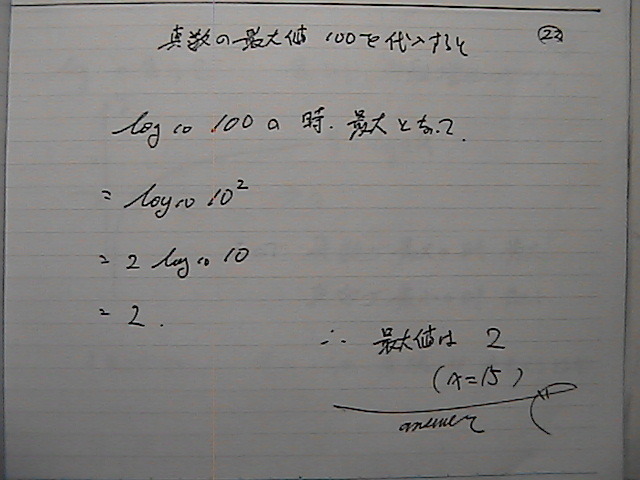 真数の最大値 100を代入すると ㉒
log₁₀ 100の時、最大となって、
= log₁₀ 10²
= 2 log₁₀ 10
= 2.
∴ 最大値は 2
(x=15)
answer